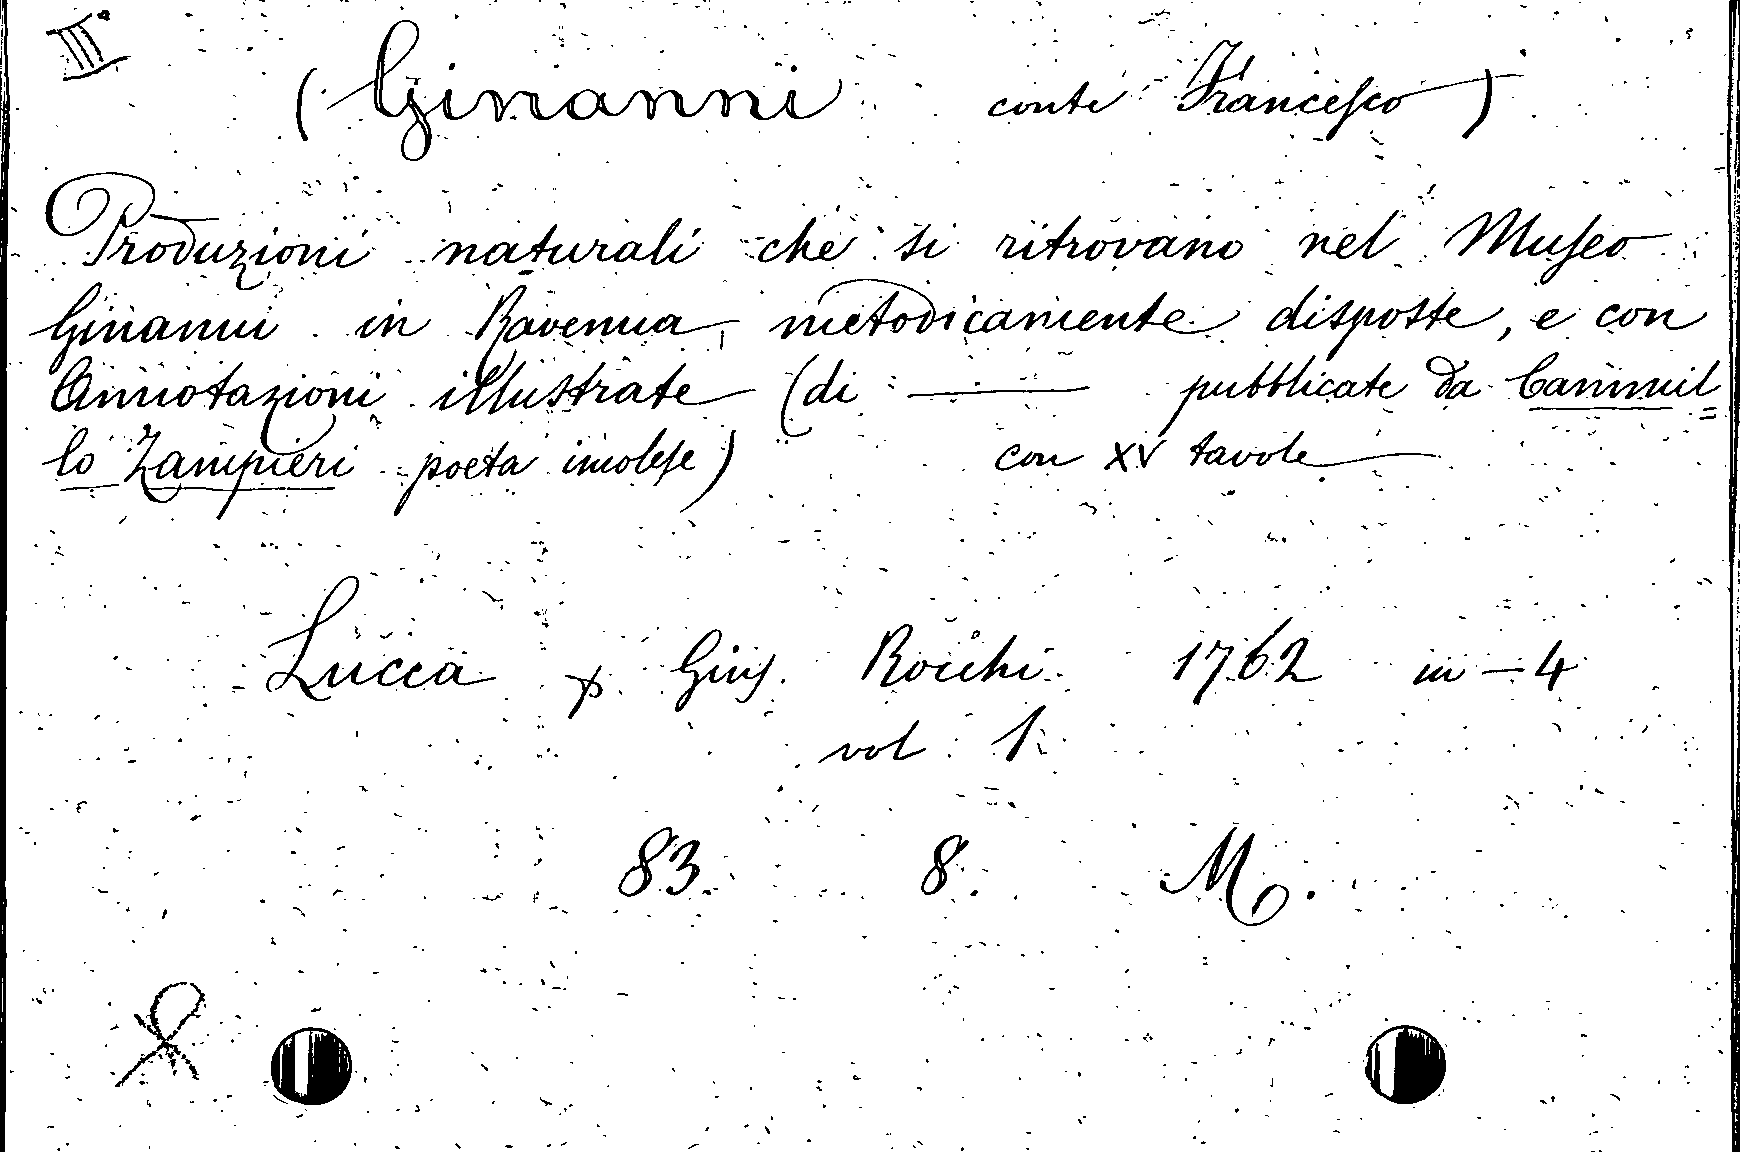 III
(Ginanni conte Francesco)
Produzioni naturali che si ritrovano nel Museo
Ginanni in Ravenna, metodicamente disposte, e con
Annotazioni illustrate (di ——— pubblicate da Cammil=
lo Zampieri poeta imolese) con XV tavole
Lucca p. Gius. Rocchi 1762 in-4
vol 1.
83. 8. M.